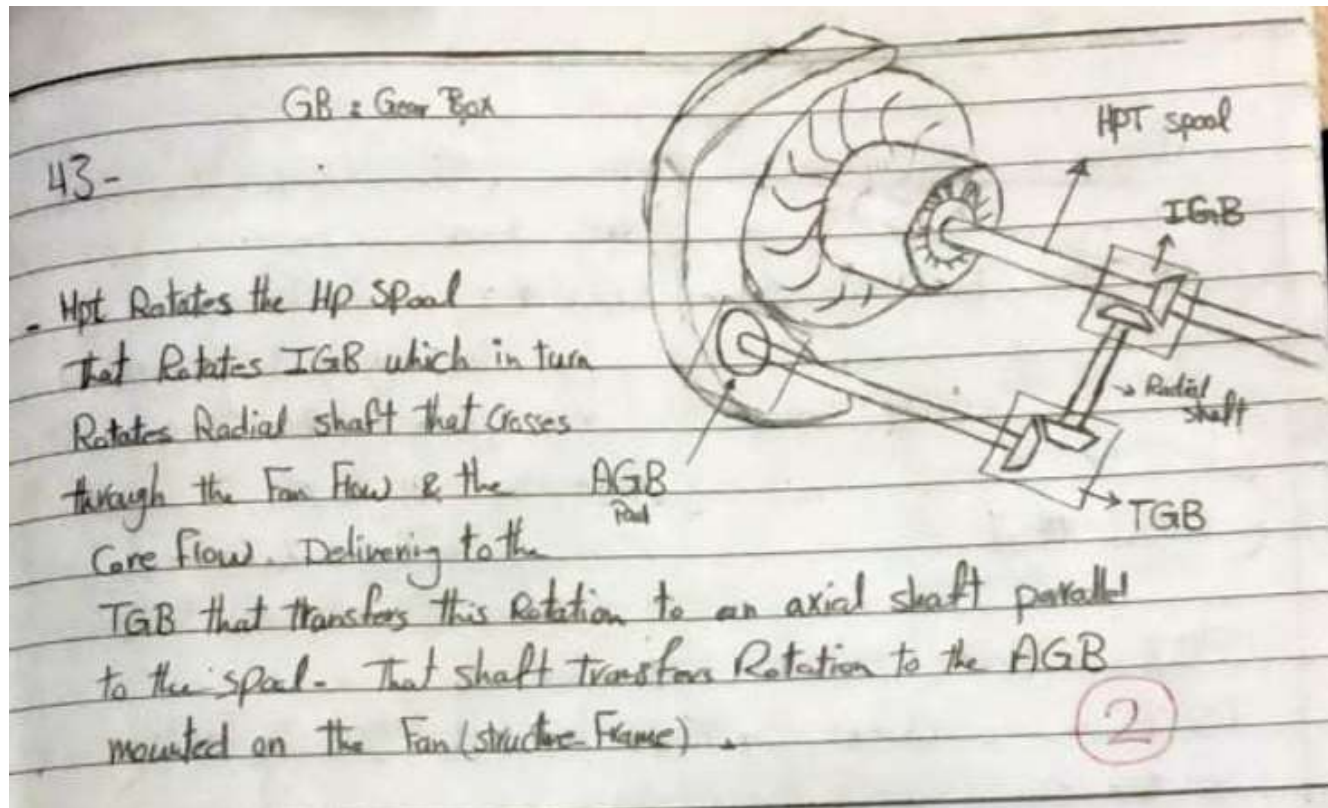 GB : Gear Box
43-
HPT spool
IGB
- Hpt Rotates the HP Spool
That Rotates IGB which in turn
Rotates Radial shaft that Crosses
through the Fan Flow & the
Core flow. Delivering to the
TGB that transfers this Rotation to an axial shaft parallel
to the spool. That shaft transfers Rotation to the AGB
mounted on the Fan (structure Frame).
Radial
shaft
AGB
TGB
2